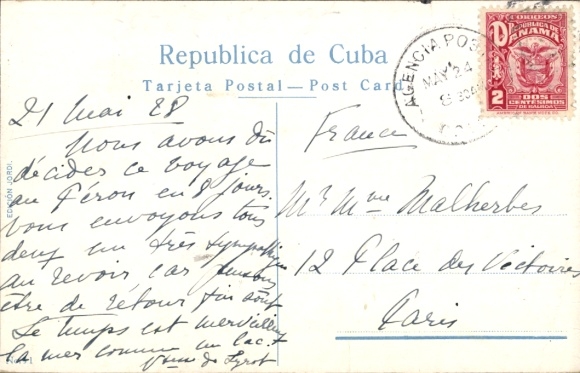 Republica de Cuba
Tarjeta Postal—Post Card
CORREOS
REPUBLICA DE
PANAMA
2
DOS
CENTESIMOS
DE BALBOA
AGENCIA POSTAL
MAY 24
21 Mai 28
Nous avons dû
décider ce voyage
au Pérou en 8 jours.
Vous envoyons tous
deux un très sympathique
au revoir car pensons
être de retour fin août
Le temps est merveilleux
la mer comme un lac.
EDICIÓN JORDI.
France
Mr Mme Malherbes
12 Place des Victoires
Paris